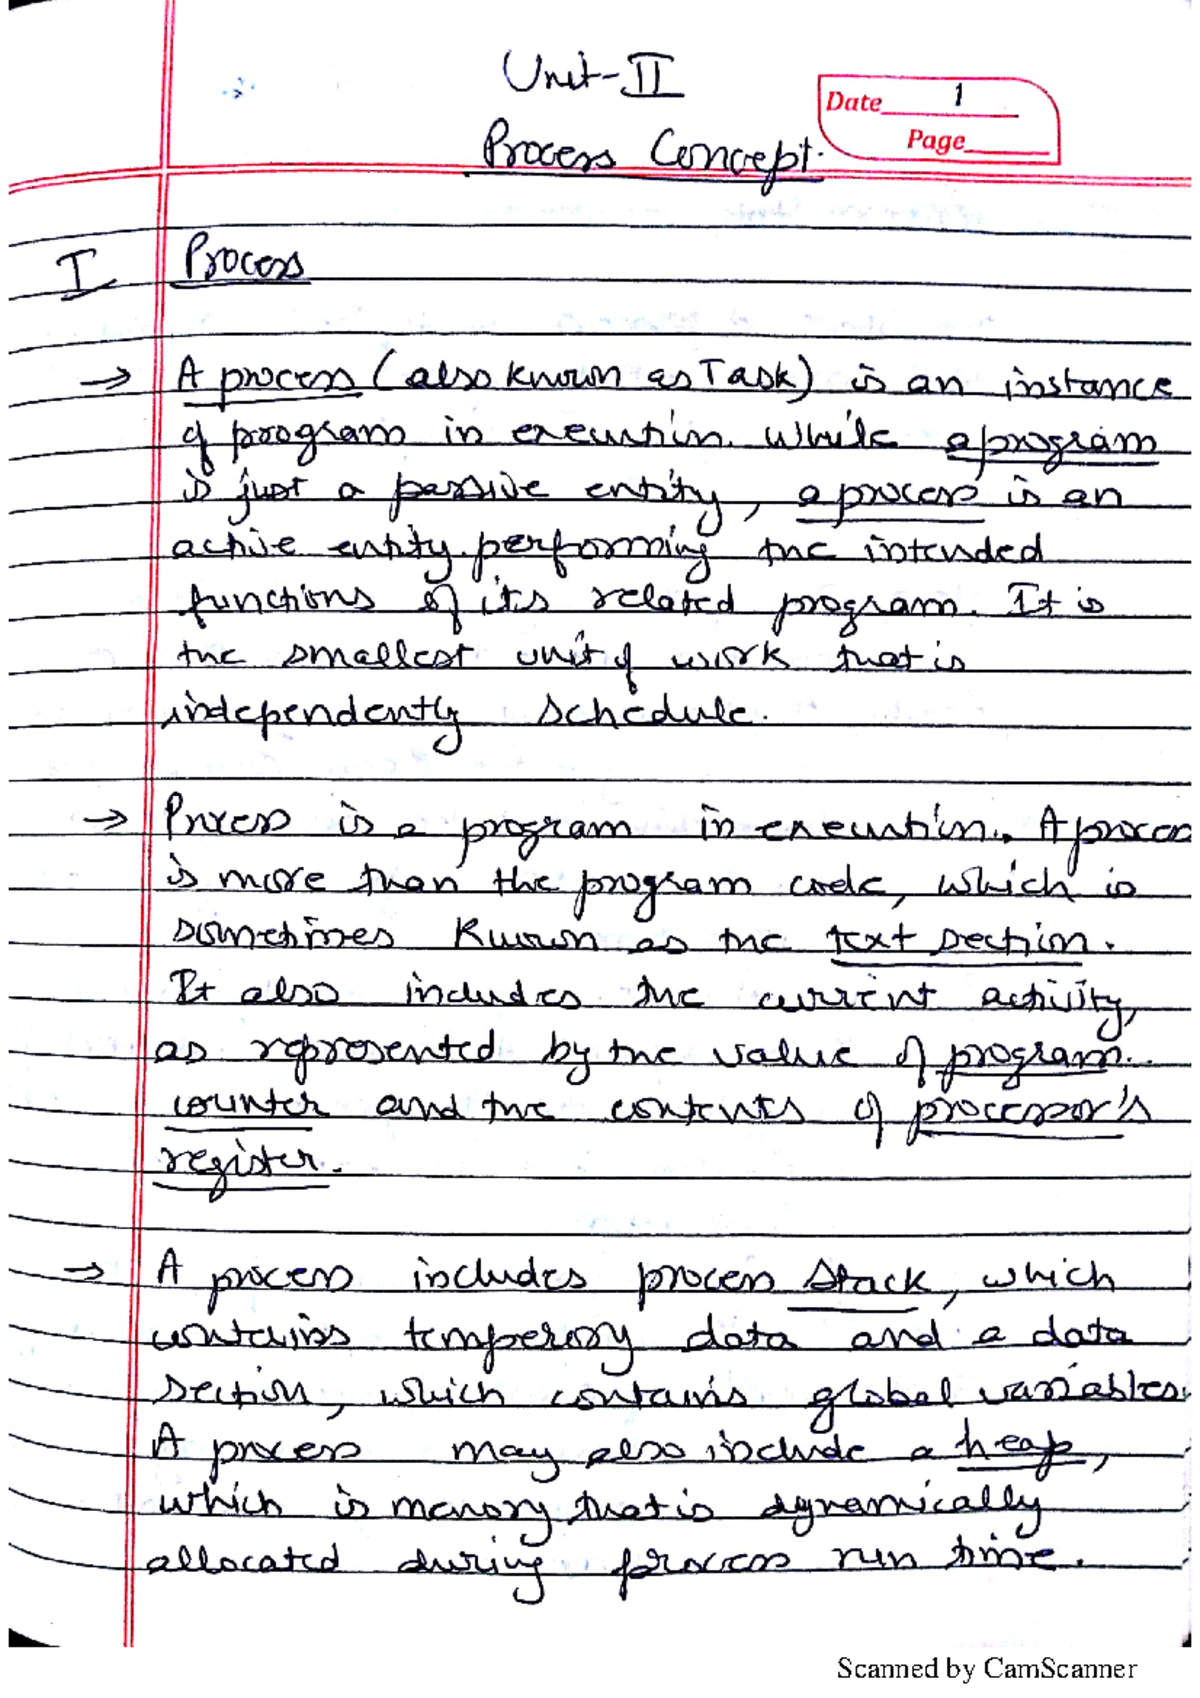 Unit-II
Date 1
Process Concept.
Page
I Process
→ A process (also known as Task) is an instance
of program in execution. While a program
is just a passive entity, a process is an
active entity performing the intended
functions of its related program. It is
the smallest unit of work that is
independently schedule.
→ Process is a program in execution. A process
is more than the program code, which is
sometimes known as the text section.
It also includes the current activity,
as represented by the value of program
counter and the contents of processor's
register.
→ A process includes process stack, which
contains temperory data and a data
section, which contains global variables.
A process may also include a heap,
which is memory that is dynamically
allocated during process run time.
Scanned by CamScanner